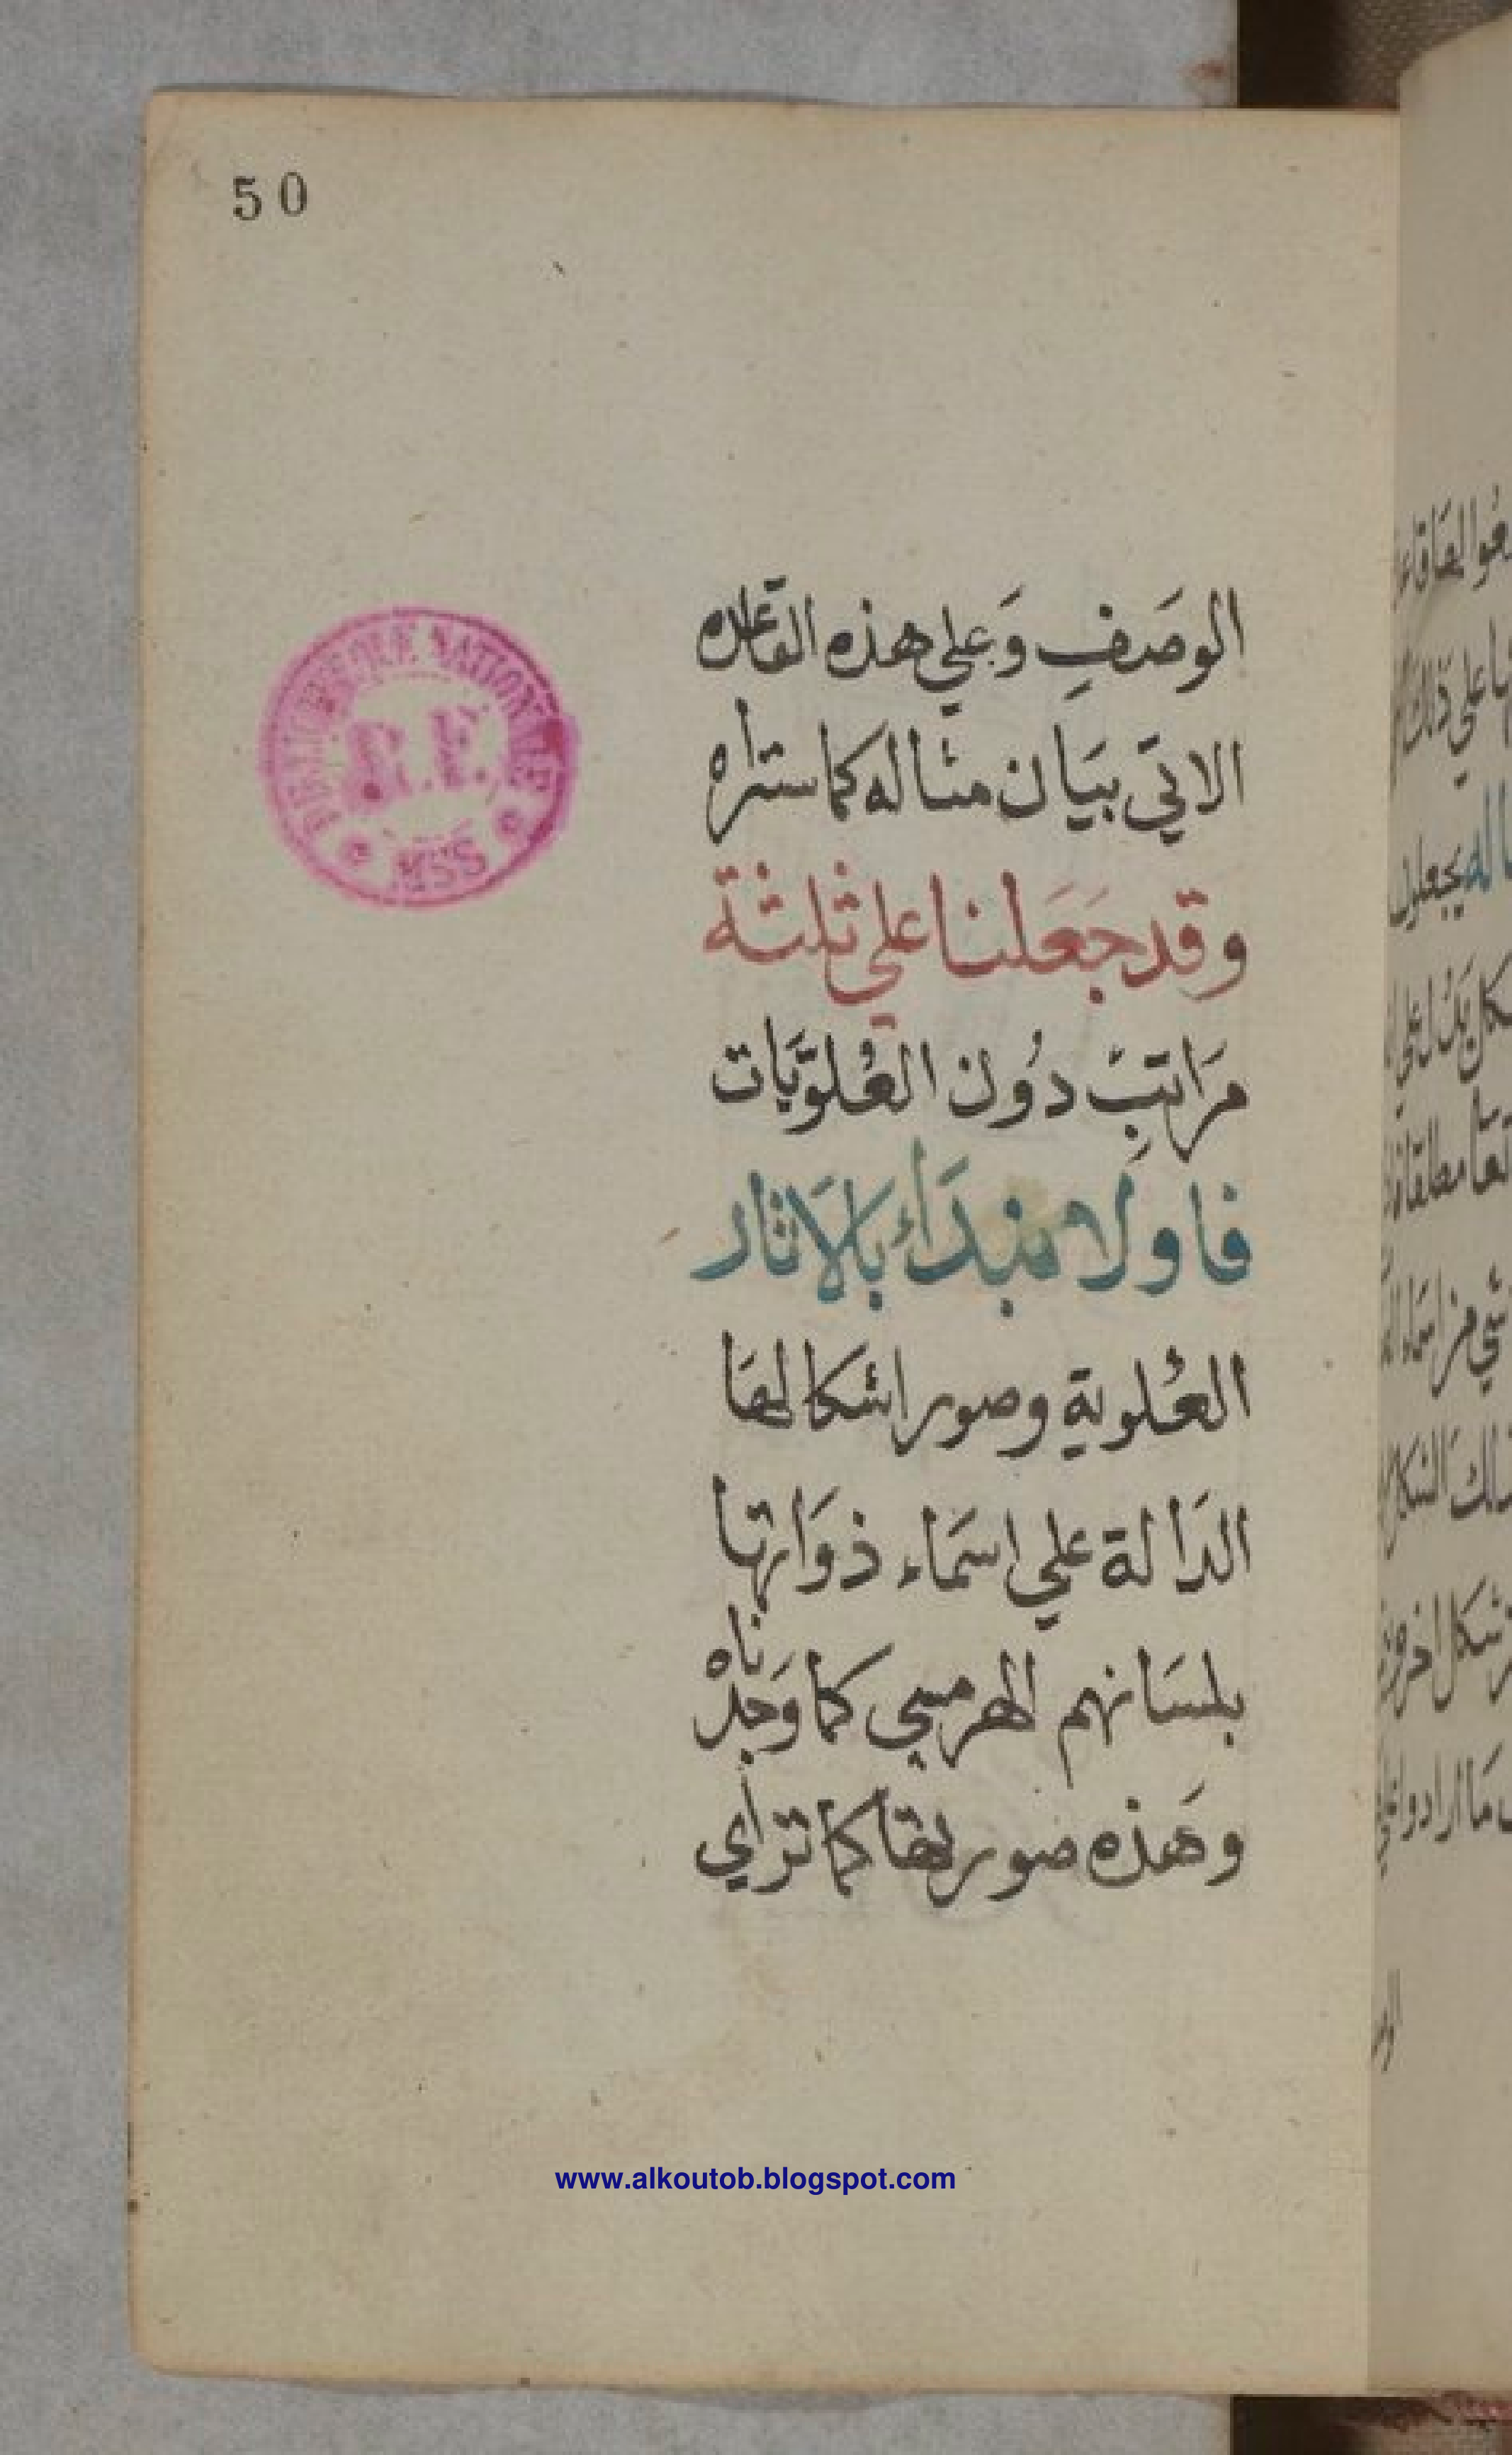 50
الوصَفِ وَعلي هذه القاعده
الاتي بيَان مثاله كما ستراه
وقد جَعَلنا علي ثلثة
مَراتبِ دُون العُلوّيَات
فاولا منبدَأ بالاَثار
العُلوية وصور اشكالهَا
الدَالة علي اسمَاء ذوَاتها
بلسَانهم الهرمسي كما وَجدناه
وهَذه صورتها كما تراي
BIBLIOTHEQUE NATIONALE
R.F.
MSS
www.alkoutob.blogspot.com